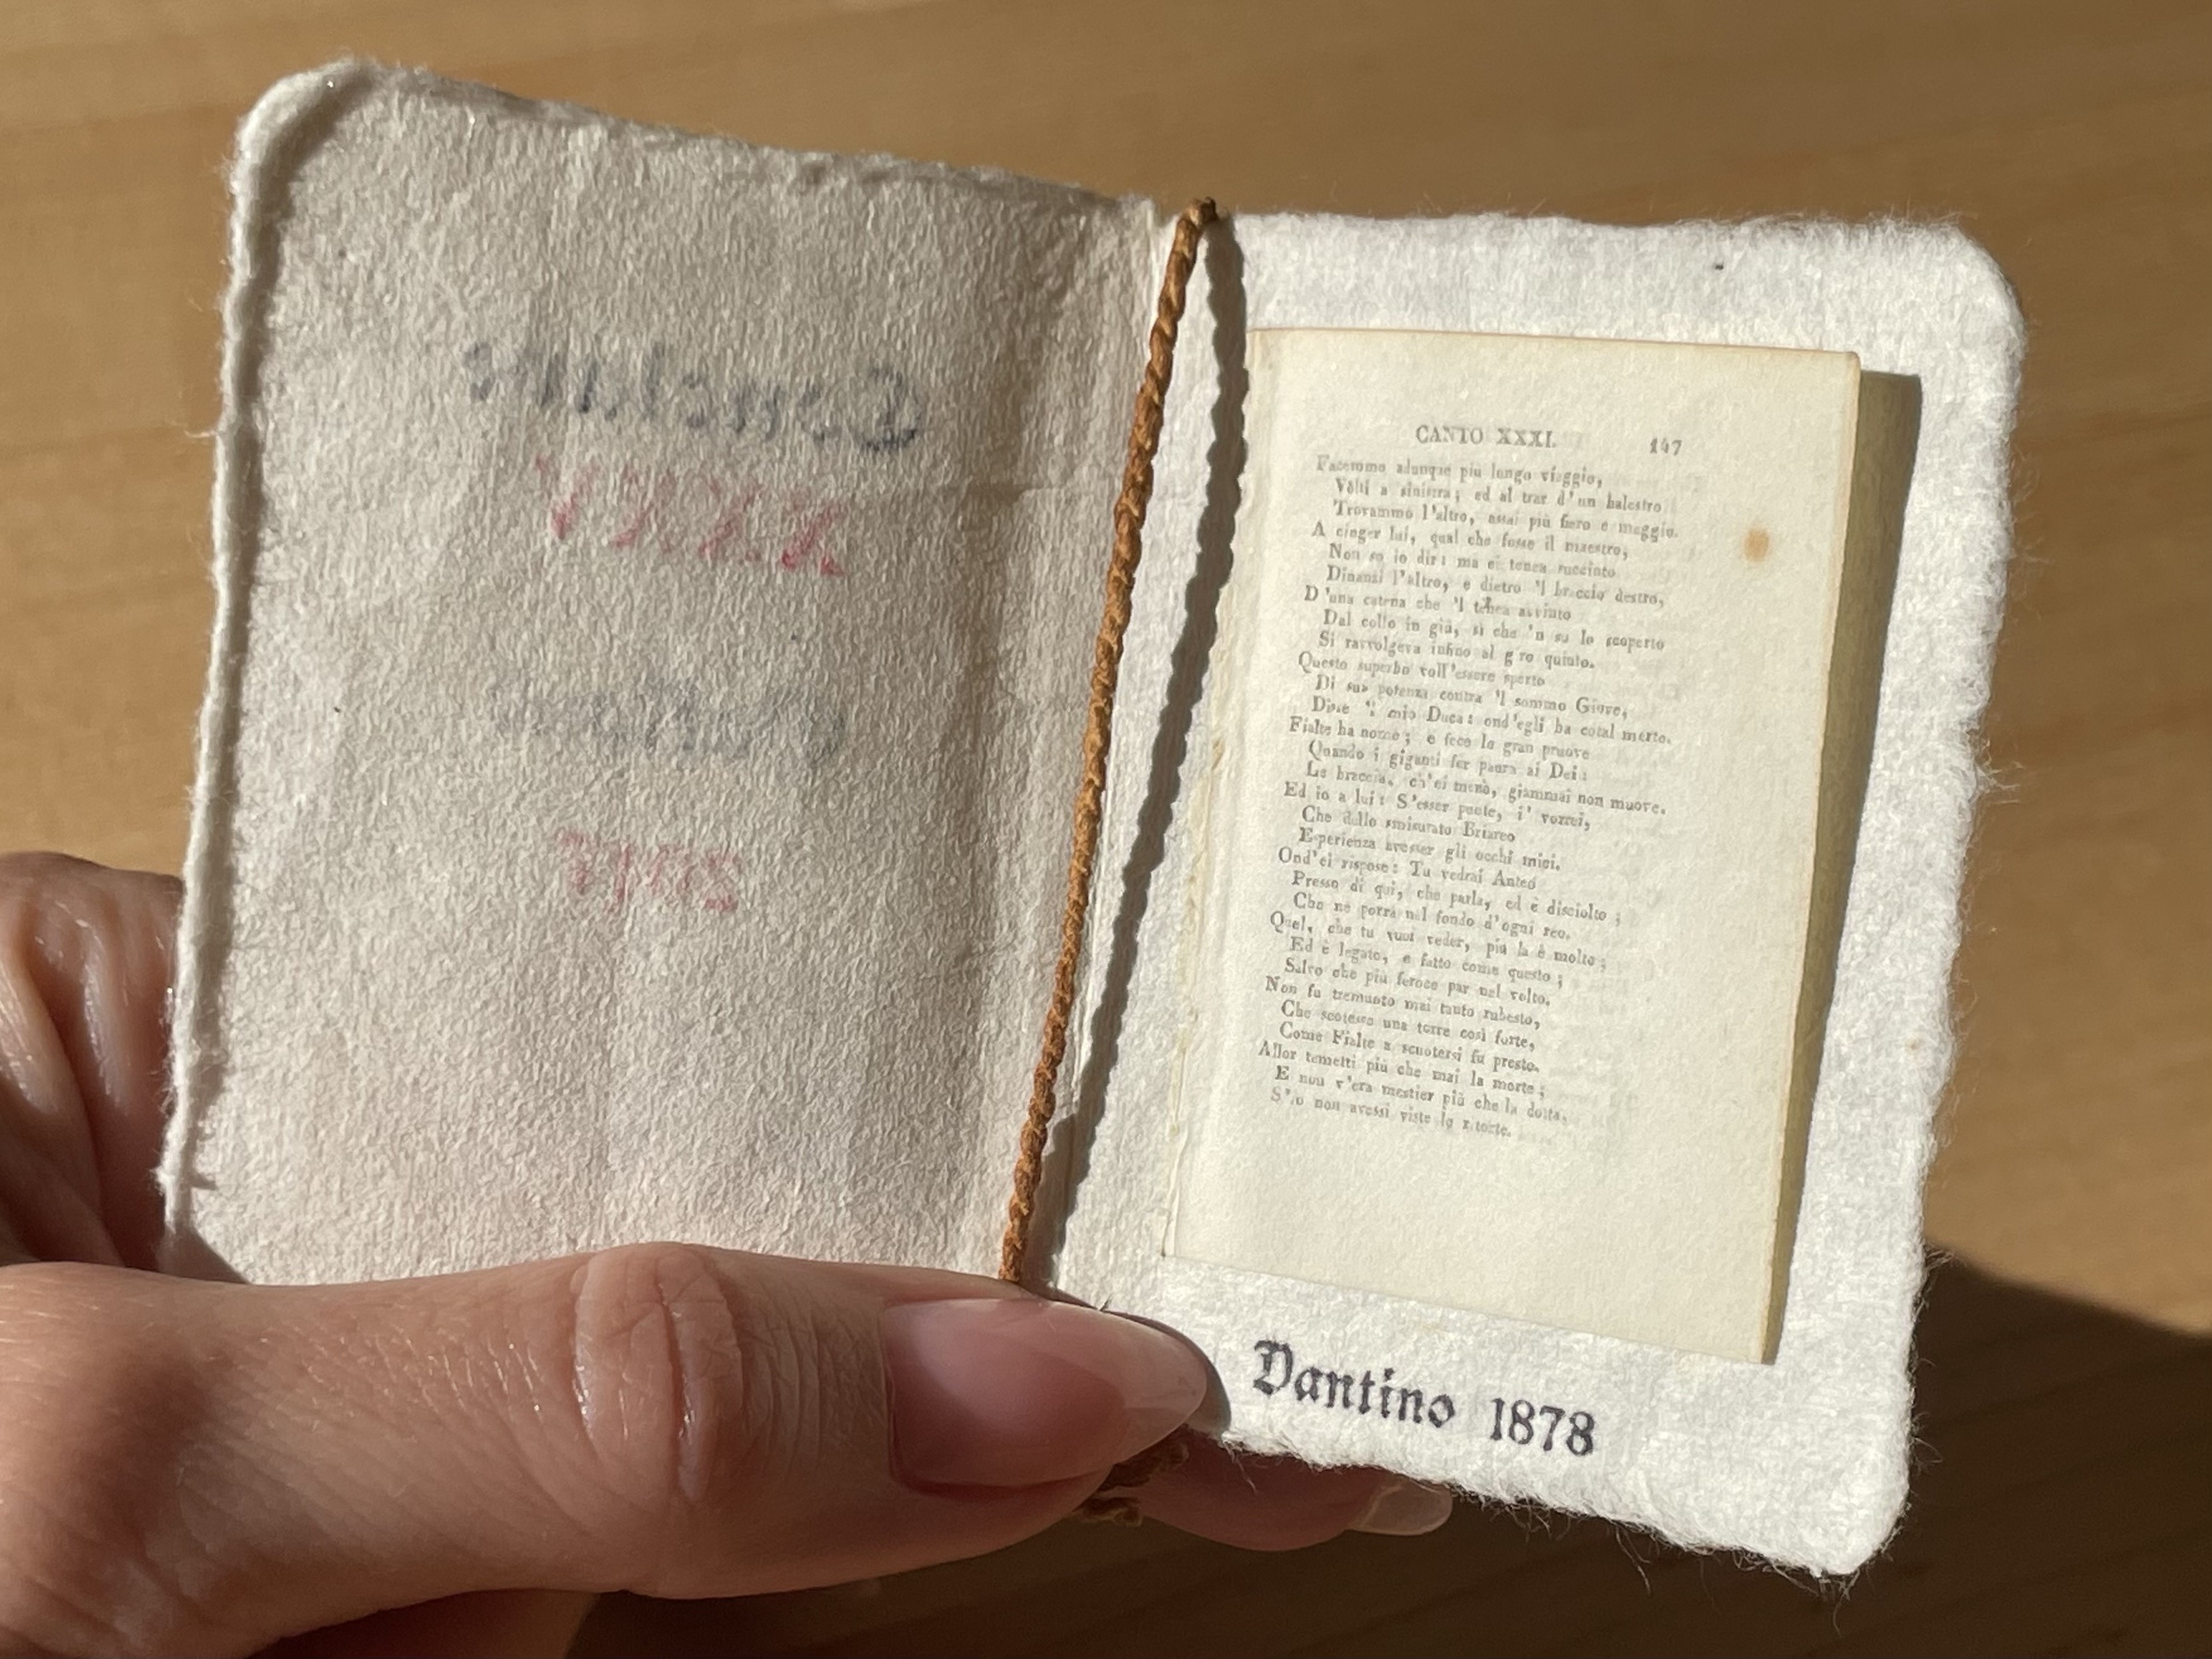 CANTO XXXI. 147
Facemmo adunque più lungo viaggio,
Vôlti a sinistra; ed al trar d'un balestro
Trovammo l'altro, assai più fiero e maggio.
A cinger lui, qual che fosse il maestro,
Non so io dir: ma ei tenea succinto
Dinanzi l'altro, e dietro 'l braccio destro,
D'una catena che 'l tenea avvinto
Dal collo in giù, sì che 'n su lo scoperto
Si ravvolgeva infino al giro quinto.
Questo superbo voll'essere sperto
Di sua potenza contra 'l sommo Giove,
Disse 'l mio Duca: ond'egli ha cotal merto.
Fialte ha nome; e fece le gran pruove
Quando i giganti fer paura ai Dei:
Le braccia, ch'ei menò, giammai non muove.
Ed io a lui: S'esser puote, i' vorrei,
Che dello smisurato Briareo
Esperienza avesser gli occhi miei.
Ond'ei rispose: Tu vedrai Anteo
Presso di qui, che parla, ed è disciolto;
Che ne porrà nel fondo d'ogni reo.
Quel, che tu vuoi veder, più là è molto;
Ed è legato, e fatto come questo;
Salvo che più feroce par nel volto.
Non fu tremuoto mai tanto rubesto,
Che scotesse una torre così forte,
Come Fialte a scuotersi fu presto.
Allor temetti più che mai la morte;
E non v'era mestier più che la dotta,
S'io non avessi viste le ritorte.
Dantino 1878